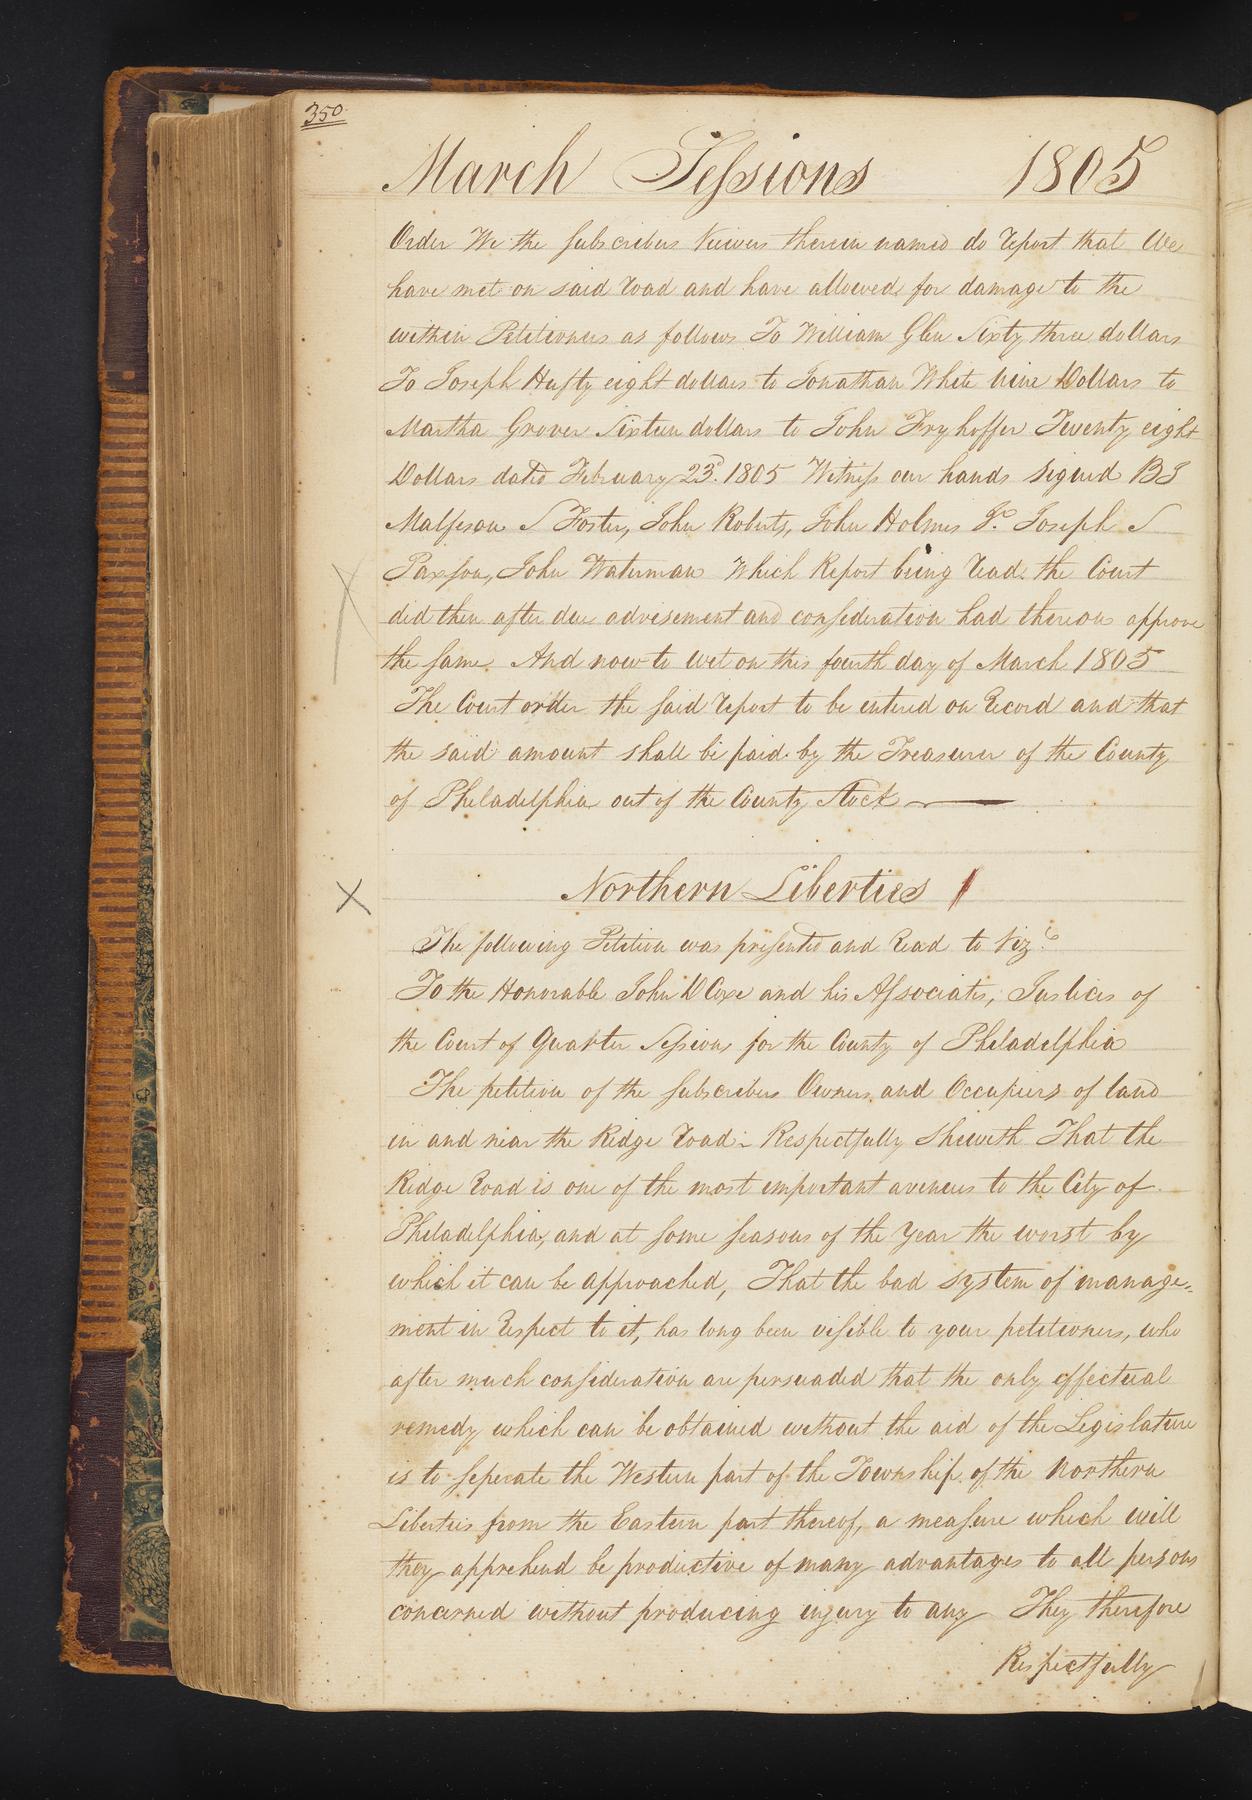 350
March Sessions 1805
Order We the Subscribers Viewers therein named do report that We
have met on said road and have allowed for damage to the
within Petitioners as follows To William Glen Sixty three dollars
To Joseph Hufty eight dollars to Jonathan White Nine Dollars to
Martha Grover Sixteen dollars to John Fryhoffer Twenty eight
Dollars dated February 23d. 1805 Witness our hands Signed
Foster, John Roberts, John Holmes Jr. Joseph S
Paxson, John Waterman Which Report being read the Court
did then after due advisement and consideration had thereon approve
the same. And now to wit on this fourth day of March 1805
The Court order the said report to be entered on Record and that
the said amount shall be paid by the Treasurer of the County
of Philadelphia out of the County Stock
Northern Liberties
The following Petition was presented and read to Viz.
To the Honorable John D Coxe and his Associates, Justices of
the Court of Quarter Sessions for the County of Philadelphia
The petition of the subscribers Owners and Occupiers of land
in and near the Ridge road:- Respectfully Sheweth That the
Ridge Road is one of the most important avenues to the City of
Philadelphia, and at some seasons of the Year the worst by
which it can be approached, That the bad system of manage=
ment in Respect to it, has long been visible to your petitioners, who
after much consideration are persuaded that the only effectual
remedy which can be obtained without the aid of the Legislature
is to seperate the Western part of the Township of the Northern
Liberties from the Eastern part thereof, a measure which will
they apprehend be productive of many advantages to all persons
concerned without producing injury to any They therefore
Respectfully